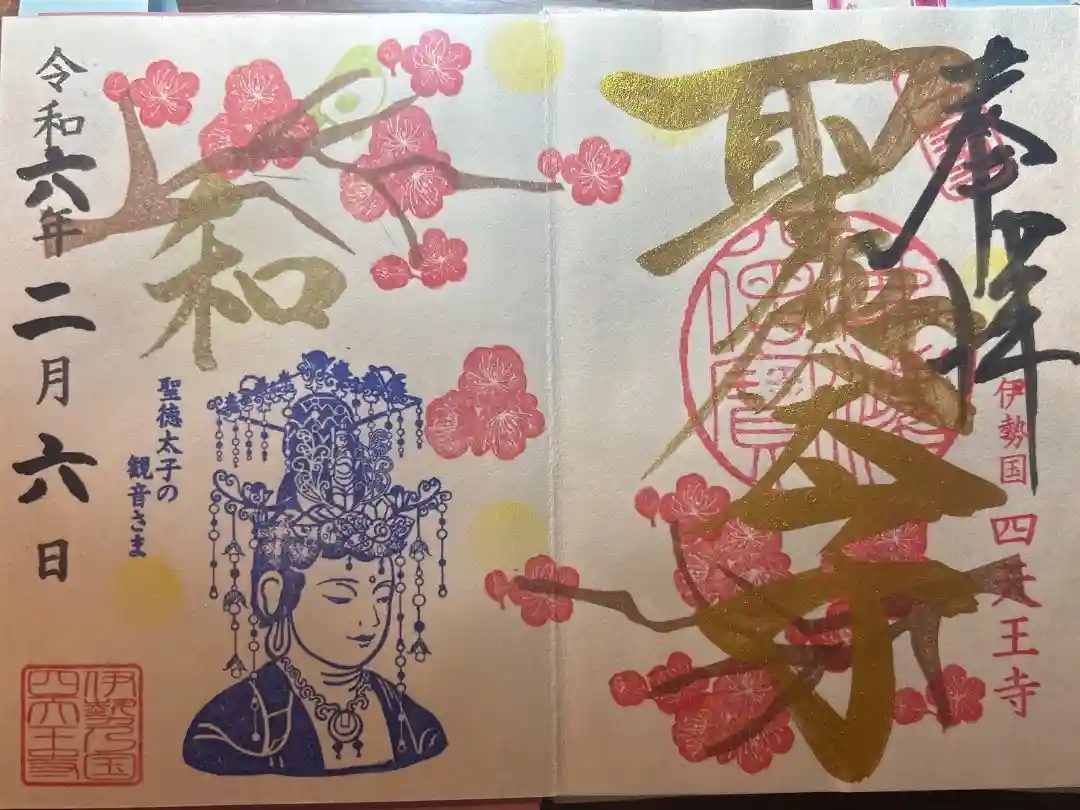 奉拝
伊勢国 四天王寺
聖徳太子
和
聖徳太子の
観音さま
令和六年二月六日
伊勢乃国
四天王寺